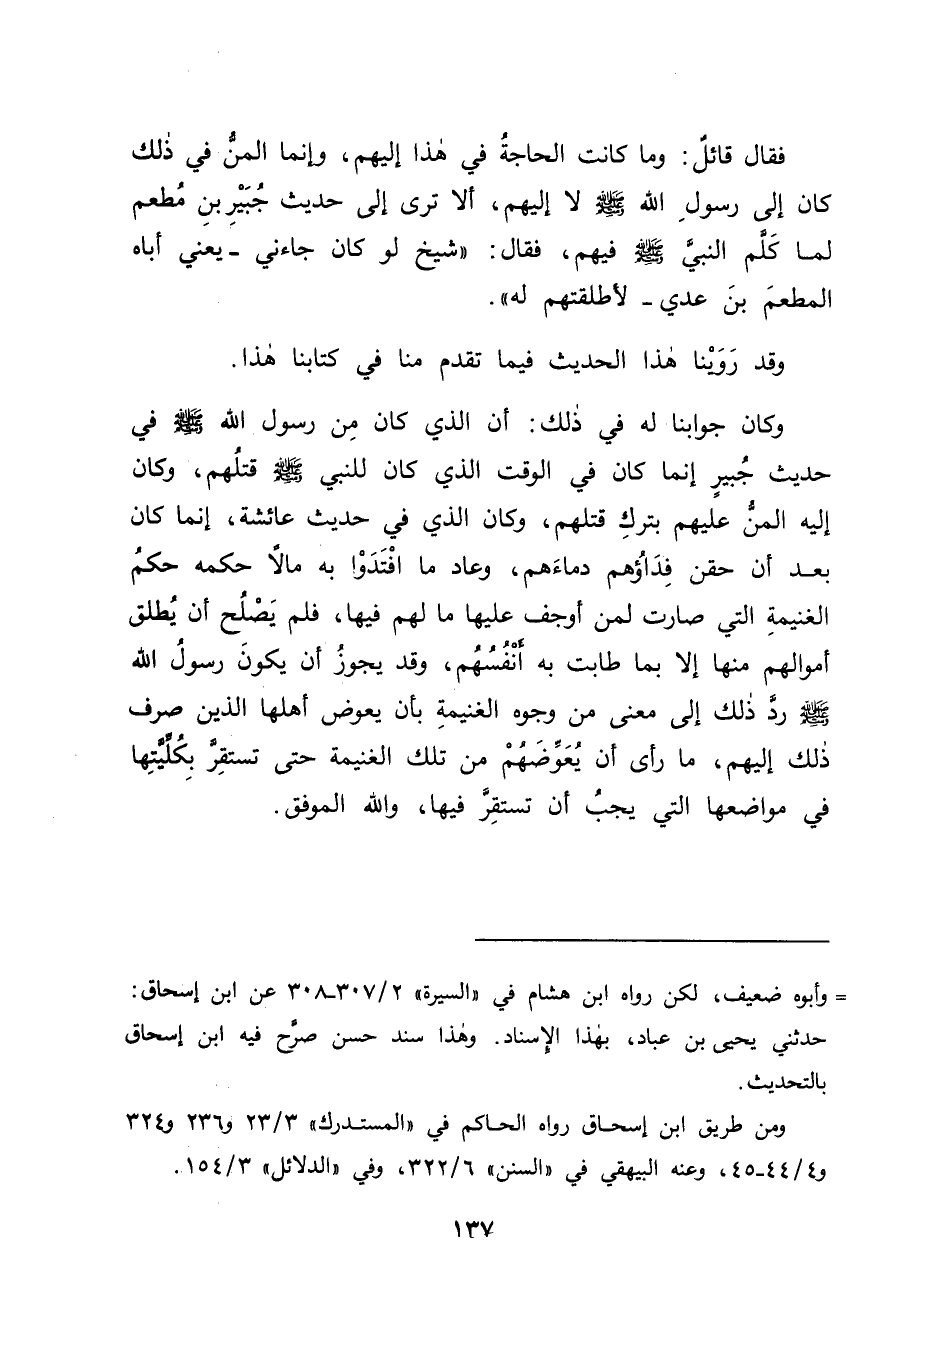 فقال قائلٌ: وما كانت الحاجةُ في هٰذا إليهم، وإنما المنُّ في ذٰلك
كان إلى رسولِ الله ﷺ لا إليهم، ألا ترى إلى حديث جُبَيْرِ بنِ مُطعم
لما كَلَّم النبيَّ ﷺ فيهم، فقال: «شيخ لو كان جاءني ـ يعني أباه
المطعمَ بنَ عدي ـ لأطلقتهم له».
وقد رَوَيْنا هٰذا الحديث فيما تقدم منا في كتابنا هٰذا.
وكان جوابنا له في ذٰلك: أن الذي كان مِن رسول الله ﷺ في
حديث جُبيرٍ إنما كان في الوقت الذي كان للنبي ﷺ قتلُهم، وكان
إليه المنُّ عليهم بتركِ قتلهم، وكان الذي في حديث عائشة، إنما كان
بعد أن حقن فِدَاؤُهم دماءَهم، وعاد ما افْتَدَوْا به مالًا حكمه حكمُ
الغنيمةِ التي صارت لمن أوجف عليها ما لهم فيها، فلم يَصْلُح أن يُطلق
أموالهم منها إلا بما طابت به أَنْفُسُهُم، وقد يجوزُ أن يكونَ رسولُ الله
ﷺ ردَّ ذٰلك إلى معنى من وجوه الغنيمةِ بأن يعوض أهلها الذين صرف
ذٰلك إليهم، ما رأى أن يُعَوِّضَهُمْ من تلك الغنيمة حتى تستقِرَّ بِكُلِّيَّتِها
في مواضعها التي يجبُ أن تستقِرَّ فيها، والله الموفق.
= وأبوه ضعيف، لكن رواه ابن هشام في «السيرة» ٣٠٧/٢ـ٣٠٨ عن ابن إسحاق:
حدثني يحيى بن عباد، بهٰذا الإسناد. وهٰذا سند حسن صرَّح فيه ابن إسحاق
بالتحديث.
ومن طريق ابن إسحاق رواه الحاكم في «المستدرك» ٢٣/٣ و٢٣٦ و٣٢٤
و٤٤/٤ـ٤٥، وعنه البيهقي في «السنن» ٣٢٢/٦، وفي «الدلائل» ١٥٤/٣.
١٣٧